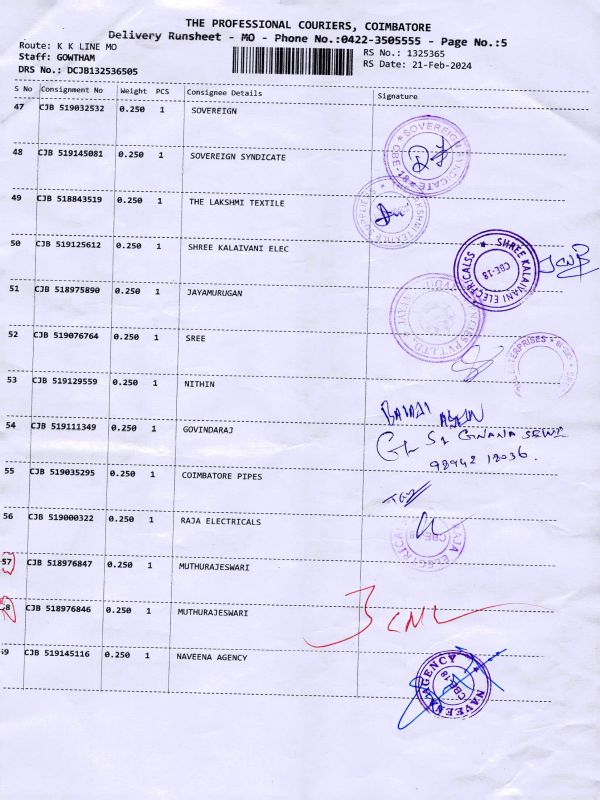 THE PROFESSIONAL COURIERS, COIMBATORE
Delivery Runsheet - MO - Phone No.:0422-3505555 - Page No.:5
Route: K K LINE MO
RS No.: 1325365
Staff: GOWTHAM
RS Date: 21-Feb-2024
DRS No.: DCJB132536505
S No Consignment No Weight PCS Consignee Details Signature
47 CJB 519032532 0.250 1 SOVEREIGN
48 CJB 519145081 0.250 1 SOVEREIGN SYNDICATE
SOVEREIGN SYNDICATE CBE-18
49 CJB 518843519 0.250 1 THE LAKSHMI TEXTILE
50 CJB 519125612 0.250 1 SHREE KALAIVANI ELEC
SHREE KALAIVANI ELECTRICALSS CBE-18
51 CJB 518975890 0.250 1 JAYAMURUGAN
52 CJB 519076764 0.250 1 SREE
ENTERPRISES
53 CJB 519129559 0.250 1 NITHIN
BALAJI
54 CJB 519111349 0.250 1 GOVINDARAJ
98942 18036.
55 CJB 519035295 0.250 1 COIMBATORE PIPES
56 CJB 519000322 0.250 1 RAJA ELECTRICALS
57 CJB 518976847 0.250 1 MUTHURAJESWARI
58 CJB 518976846 0.250 1 MUTHURAJESWARI
59 CJB 519145116 0.250 1 NAVEENA AGENCY
NAVEENA AGENCY CBE-18